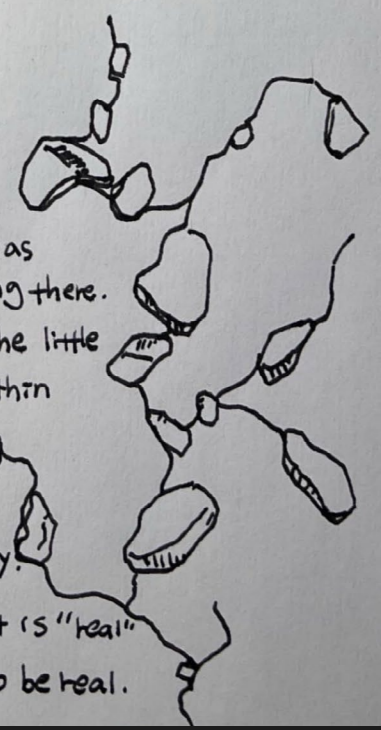 as
g there.
he little
thin
y.
t is "real"
o be real.